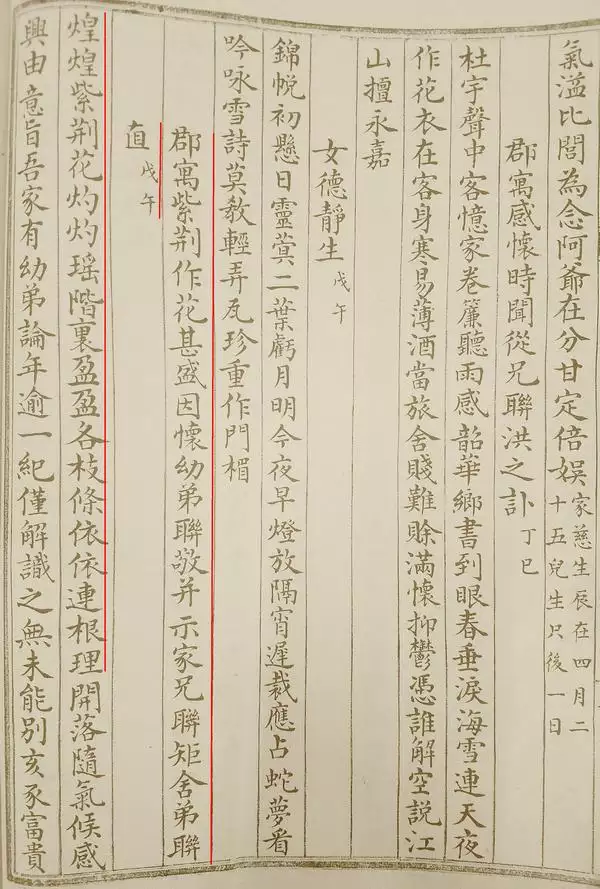 氣溢比閭為念阿爺在分甘定倍娱家慈生辰在四月二
十五兒生只後一日
郡寓感懷時聞從兄聯洪之訃丁巳
杜宇聲中客憶家卷簾聽雨感韶華鄉書到眼春垂淚海雪連天夜
作花衣在客身寒易薄酒當旅舍賤難賒滿懷抑鬱憑誰解空説江
山擅永嘉
女德靜生戊午
錦帨初懸日靈蓂二葉虧月明今夜早燈放隔宵遲裁應占蛇夢看
吟咏雪詩莫教輕弄瓦珍重作門楣
郡寓紫荆作花甚盛因懷幼弟聯敬并示家兄聯矩舍弟聯
直戊午
煌煌紫荆花灼灼瑶階裏盈盈各枝條依依連根理開落隨氣候感
興由意旨吾家有幼弟論年逾一紀僅解識之無未能別亥豕富貴